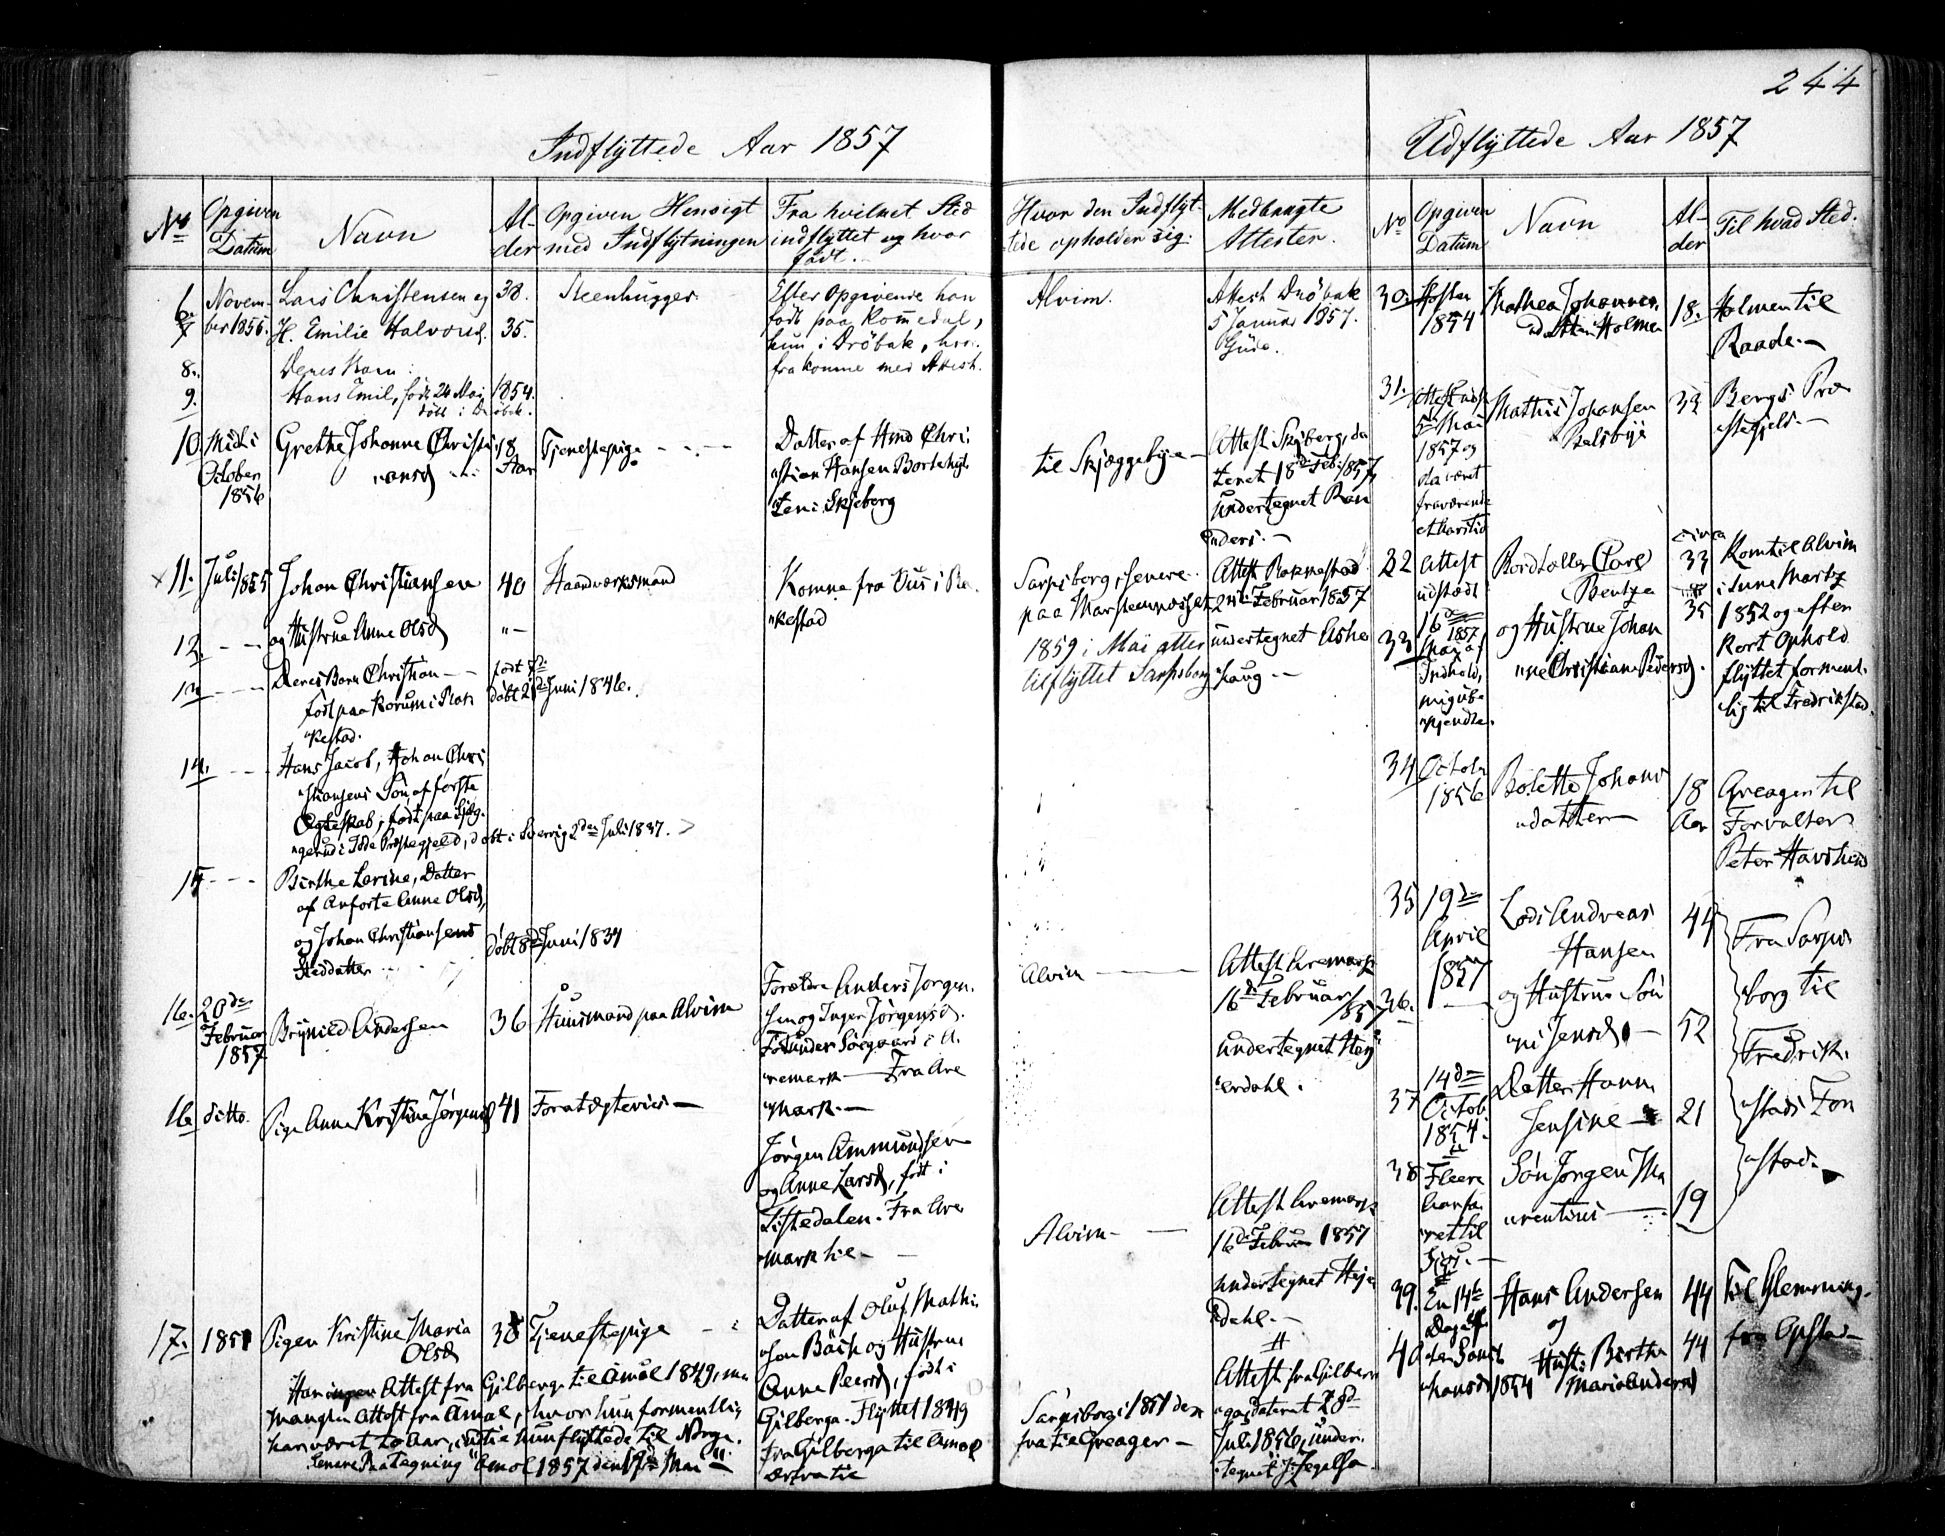 244
Indflyttede Aar 1857
No
Opgiven Datum
Navn
Alder
Opgiven Hensigt med Indflytningen
Fra hvilket Sted indflyttet og hvor født.
Hvor den Indflyttede opholder sig.
Medbragte Attester.
6. 7
November 1856.
Lars Christensen og
H. Emilie Halvorsd.
38.
35.
Steenhugger
Efter Opgivende han
født paa Romedal,
hun i Dröbak, hvor-
fra komme med Attest.
Alvim.
Attest Dröbak
5 Januar 1857.
8.
Deres Barn:
9.
Hans Emil, født 24 Mai 1854.
döbt i Dröbak.
10
Midt i
October
1856
Grethe Johanne Christi
"ansd
18
Aar
Tjenestepige
Datter af Hmd Chri
"stian Hansen Bortehyt
ten i Skjeberg
til Skjæggebye
Attest Skjeberg, da
teret 18de Feb. 1857,
undertegnet Ran
"ders.
x 11.
Juli 1855
Johan Christiansen
40
Haandværksmand
Komne fra Huus i Ra
"kestad
Sarpsborg, senere
paa
1859 i Mai atter
tilflyttet Sarpsborg
Attest Rakkestad
24de Februar 1857
undertegnet Ashe
haug
12
og Hustrue Anne Olsd
"–
13
Deres Børn Christian
født paa Korum i Rak
"kestad.
født 7de
döbt 21de Juni 1846.
14.
Hans Jacob, Johan Chri
"stiansens Søn af første
Egteskab, født paa
"gerud i Præstegjeld, döbt i Sverrig 2den Juli 1837.
15
Birthe Lovine, Datter
af Anførte Anne Olsd,
og Johan Christiansens
Steddatter
döbt 8de Juni 1834
16.
20de
Februar
1857
Brynild Andersen
36
Huusmand paa Alvim
Forældre Anders Jörgen
sen og Inger Jörgensd.
Föd under i A
"remark – Fra Are
"mark.
Alvim
Attest Aremark
16de Februar
1857
undertegnet Hey
"erdahl.
16
ditto.
Pige Anne Kristine Jørgensd
41
Jørgen Ammundsen
og Anne Larsd, født i
Tistedalen. Fra Are
"mark til –
Alvim
Attest Aremark
16de Februar 1857
undertegnet Heje
"dahl.
17.
1851
Pigen Kristine Maria
Olsd
38
Tjenestepige
Datter af Oluf Mathi
"sen Bäck og Hustrue
Anne Peersd, født i
Gilberga. Flyttet 1849
fra Gilberga til Amol
Har ingen Attest fra Gilberga til Amol 1849, men
mangler Attest fra Amol, hvor hun formentlig
har været to Aar, indtil hun flyttede til Norge.
Senere Paategning Amol 1857 den
Sarpsborg i 1851 den
fra til Greager
Attest fra Gilber
"ga, dateret 28de
Juli 1856, under
"tegnet J.
Udflyttede Aar 1857
No
Opgiven Datum
Navn
Alder
Til hvad Sted.
30.
Høsten
1854
Mathea Johannes
"datter Holmen
18.
Holmen til
Raade.
31.
Attest udst
5te Mai
1857 og
da været
fraværende
et Aarstid
Mathis Johansen
Balsbye
33
Bergs Præ
"stegjeld.
32
Attest
udstedt
16de
1857
Bordtøller Carl
Bentzen
circa
33
Kom til Alvim
i June Marts
1852 og efter
kort Ophold
flyttet forment
lig til Fredrikstad.
33
og Hustrue Johan
"ne Christiane Pedersd.
35
34
Octobr
1856
Bolette Johans
"datter
18
Aar
Greager til
Forvalter
Peter
35
19de
April
1857
Lods Andreas
Hansen
44
Fra Sarps
borg til
Fredrik
"stads For
"stad.
36.
og Hustrue Sön
"ni Jensd
52
37
14de
Octob
1854.
Datter Hanna
Jensine
21
38
Fleere
Søn Jørgen Ma
"rentius
19
39.
En 14te
Dage
Hans Andersen
og
44
Til Glemminge
fra Opstad
40
1854
Hust: Birthe
Maria Andersd
44